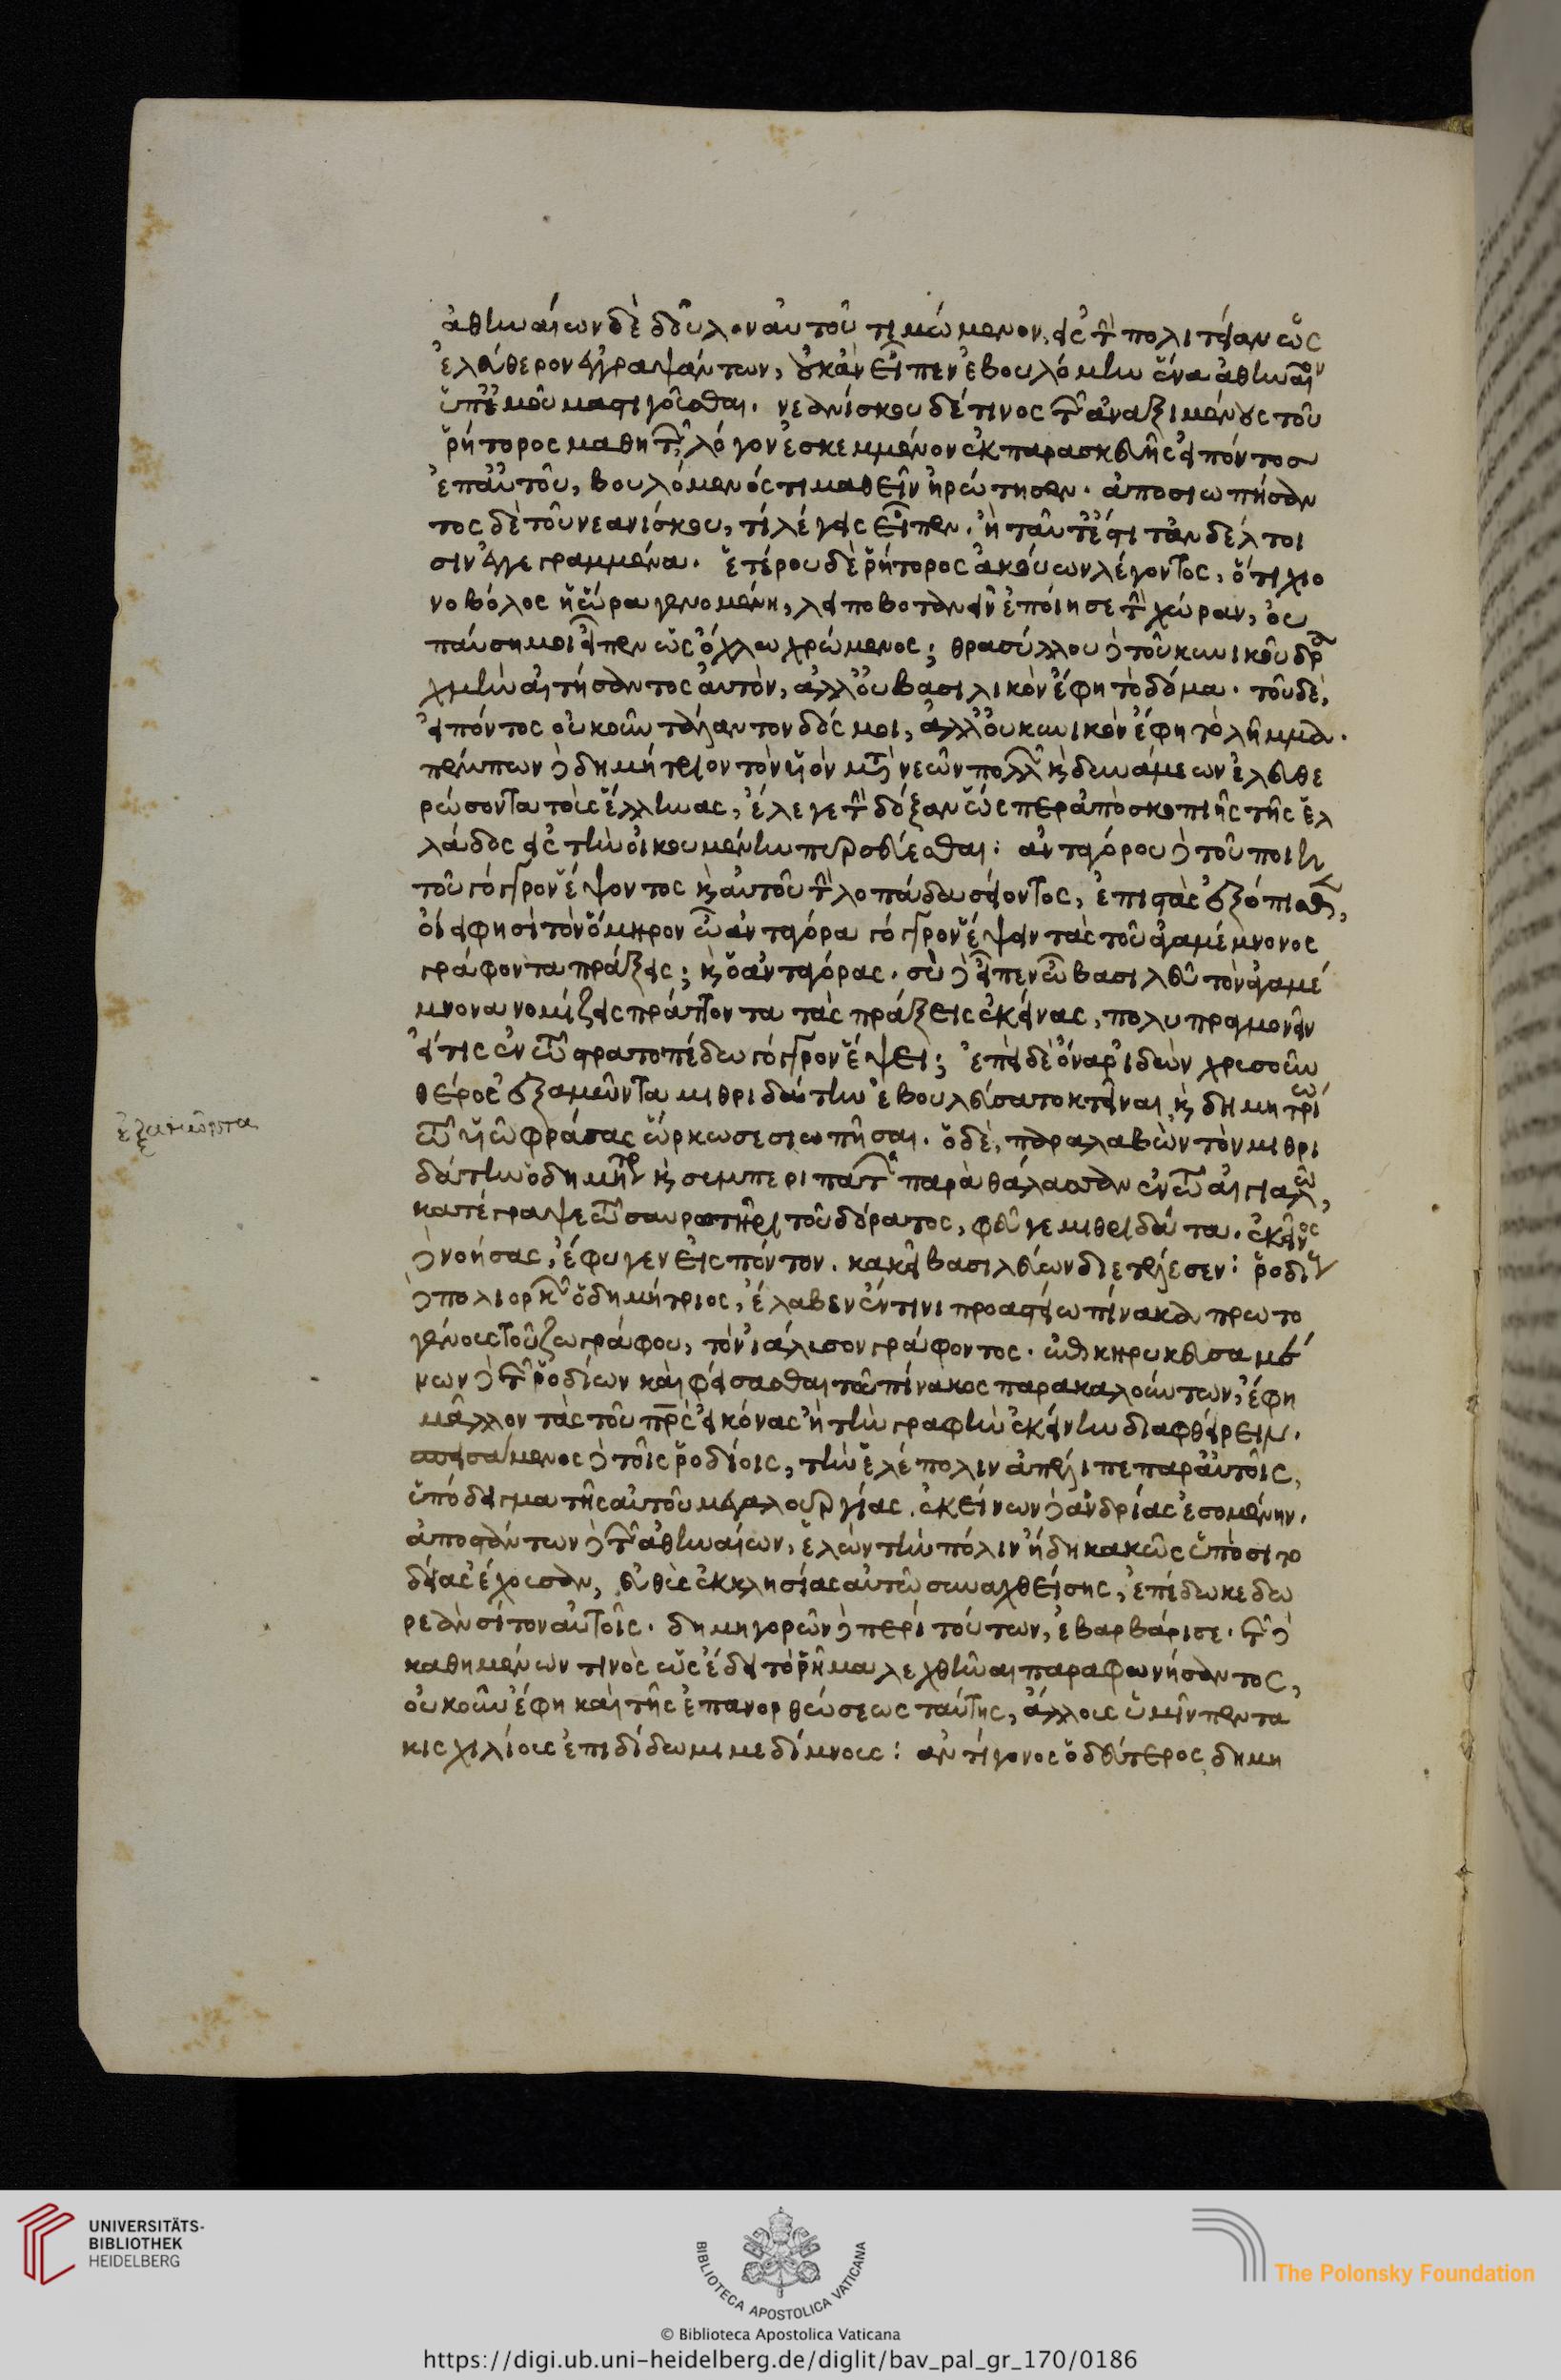 ἀθηναίων δὲ δοῦλον αὐτοῦ τιμώμενον, εἰς τὴν πολιτείαν ὡς
ἐλεύθερον ἐγγραψάντων, οὐκ ἂν εἶπεν ἐβουλόμην ἕνα ἀθηναῖον
ὑπ' ἐμοῦ μαστιγοῦσθαι. νεανίσκου δέ τινος τῶν ἀναξιμένους τοῦ
ῥήτορος μαθητῶν, λόγον ἐσκεμμένον ἐκ παρασκευῆς εἰπόντος
ἐπ' αὐτοῦ, βουλόμενός τι μαθεῖν ἠρώτησεν. ἀποσιωπήσαν
τος δὲ τοῦ νεανίσκου, τί λέγεις εἶπεν. ἢ ταῦτ' ἐστὶ τὰν δέλτοι
σιν ἐγγεγραμμένα. ἑτέρου δὲ ῥήτορος ἀκούων λέγοντος, ὅτι χιο
νοβόλος ἡ ὥρα γενομένη, λειποβοτανεῖν ἐποίησε τὴν χώραν, οὐ
παύσῃ μοι εἶπεν ὡς ὄχλω χρώμενος; θρασύλλου δὲ τοῦ κυνικοῦ δρα
χμὴν αἰτήσαντος αὐτὸν, ἀλλ' οὐ βασιλικὸν ἔφη τὸ δόμα. τοῦ δὲ,
εἰπόντος οὐκοῦν τάλαντον δός μοι, ἀλλ' οὐ κυνικὸν ἔφη τὸ λῆμμα.
πέμπων δὲ δημήτριον τὸν υἱὸν μετὰ νεῶν πολλῶν καὶ δυνάμεων ἐλευθε
ρώσοντα τοὺς ἕλληνας, ἔλεγε τὴν δόξαν ὥσπερ ἀπὸ σκοπιῆς τῆς ἑλ
λάδος εἰς τὴν οἰκουμένην πυρσεύεσθαι: ἀνταγόρου δὲ τοῦ ποιη
τοῦ γόγγρον ἕψοντος καὶ αὐτοῦ τὴν λοπάδα σείοντος, ἐπιστὰς ἐξόπισθεν,
οἴει φησὶ τὸν ὅμηρον ὦ ἀνταγόρα γόγγρον ἕψειν τὰς τοῦ ἀγαμέμνονος
γράφοντα πράξεις; καὶ ὁ ἀνταγόρας. σὺ δὲ εἶπεν ὦ βασιλεῦ τὸν ἀγαμέ
μνονα νομίζεις πράττοντα τὰς πράξεις ἐκείνας, πολυπραγμονεῖν
εἴ τις ἐν τῷ στρατοπέδω γόγγρον ἕψει; ἐπεὶ δὲ ὄναρ ἰδὼν χρυσοῦν
θέρος ἐξαμῶντα μιθριδάτην ἐβουλεύσατο κτεῖναι, καὶ δημητρίω
τῷ υἱῷ φράσας ὥρκωσε σιωπῆσαι. ὁ δὲ, παραλαβὼν τὸν μιθρι
δάτην ὁ δημήτριος καὶ συμπεριπατῶν παρὰ θάλασσαν ἐν τῷ αἰγιαλῷ,
κατέγραψε τῷ σαυρωτῆρι τοῦ δόρατος, φεῦγε μιθριδάτα. ἐκεῖνος
δὲ νοήσας, ἔφυγεν εἰς πόντον. κἀκεῖ βασιλεύων διετέλεσεν: ῥοδίους
δὲ πολιορκῶν ὁ δημήτριος, ἔλαβεν ἔν τινι προαστείω πίνακα πρωτο
γένους τοῦ ζωγράφου, τὸν ἰάλυσον γράφοντος. ἐπικηρυκευσαμέ
νων δὲ τῶν ῥοδίων καὶ φείσασθαι τοῦ πίνακος παρακαλούντων, ἔφη
μᾶλλον τὰς τοῦ πρς εἰκόνας ἢ τὴν γραφὴν ἐκείνην διαφθείρειν.
σπεισάμενος δὲ τοῖς ῥοδίοις, τὴν ἑλέπολιν ἀπέλιπε παρ' αὐτοῖς,
ὑπόδειγμα τῆς αὐτοῦ μεγαλουργίας. ἐκείνων δὲ ἀνδρίας ἐσομένην.
ἀποστάντων δὲ τῶν ἀθηναίων, ἑλὼν τὴν πόλιν ἤδη κακῶς ὑπὸ σιτο
δείας ἔχουσαν, εὐθὺς ἐκκλησίας αὐτῷ συναχθείσης, ἐπέδωκε δω
ρεὰν σῖτον αὐτοῖς. δημηγορῶν δὲ περὶ τούτων, ἐβαρβάρισε. τῶν δὲ
καθημένων τινὸς ὡς ἔδει τὸ ῥῆμα λεχθῆναι παραφωνήσαντος,
οὐκοῦν ἔφη καὶ τῆς ἐπανορθώσεως ταύτης, ἄλλους ὑμῖν πεντα
κισχιλίους ἐπιδίδωμι μεδίμνους: ἀντίγονος ὁ δεύτερος δημη
UNIVERSITÄTS-
BIBLIOTHEK
HEIDELBERG
BIBLIOTECA APOSTOLICA VATICANA
The Polonsky Foundation
© Biblioteca Apostolica Vaticana
https://digi.ub.uni-heidelberg.de/diglit/bav_pal_gr_170/0186